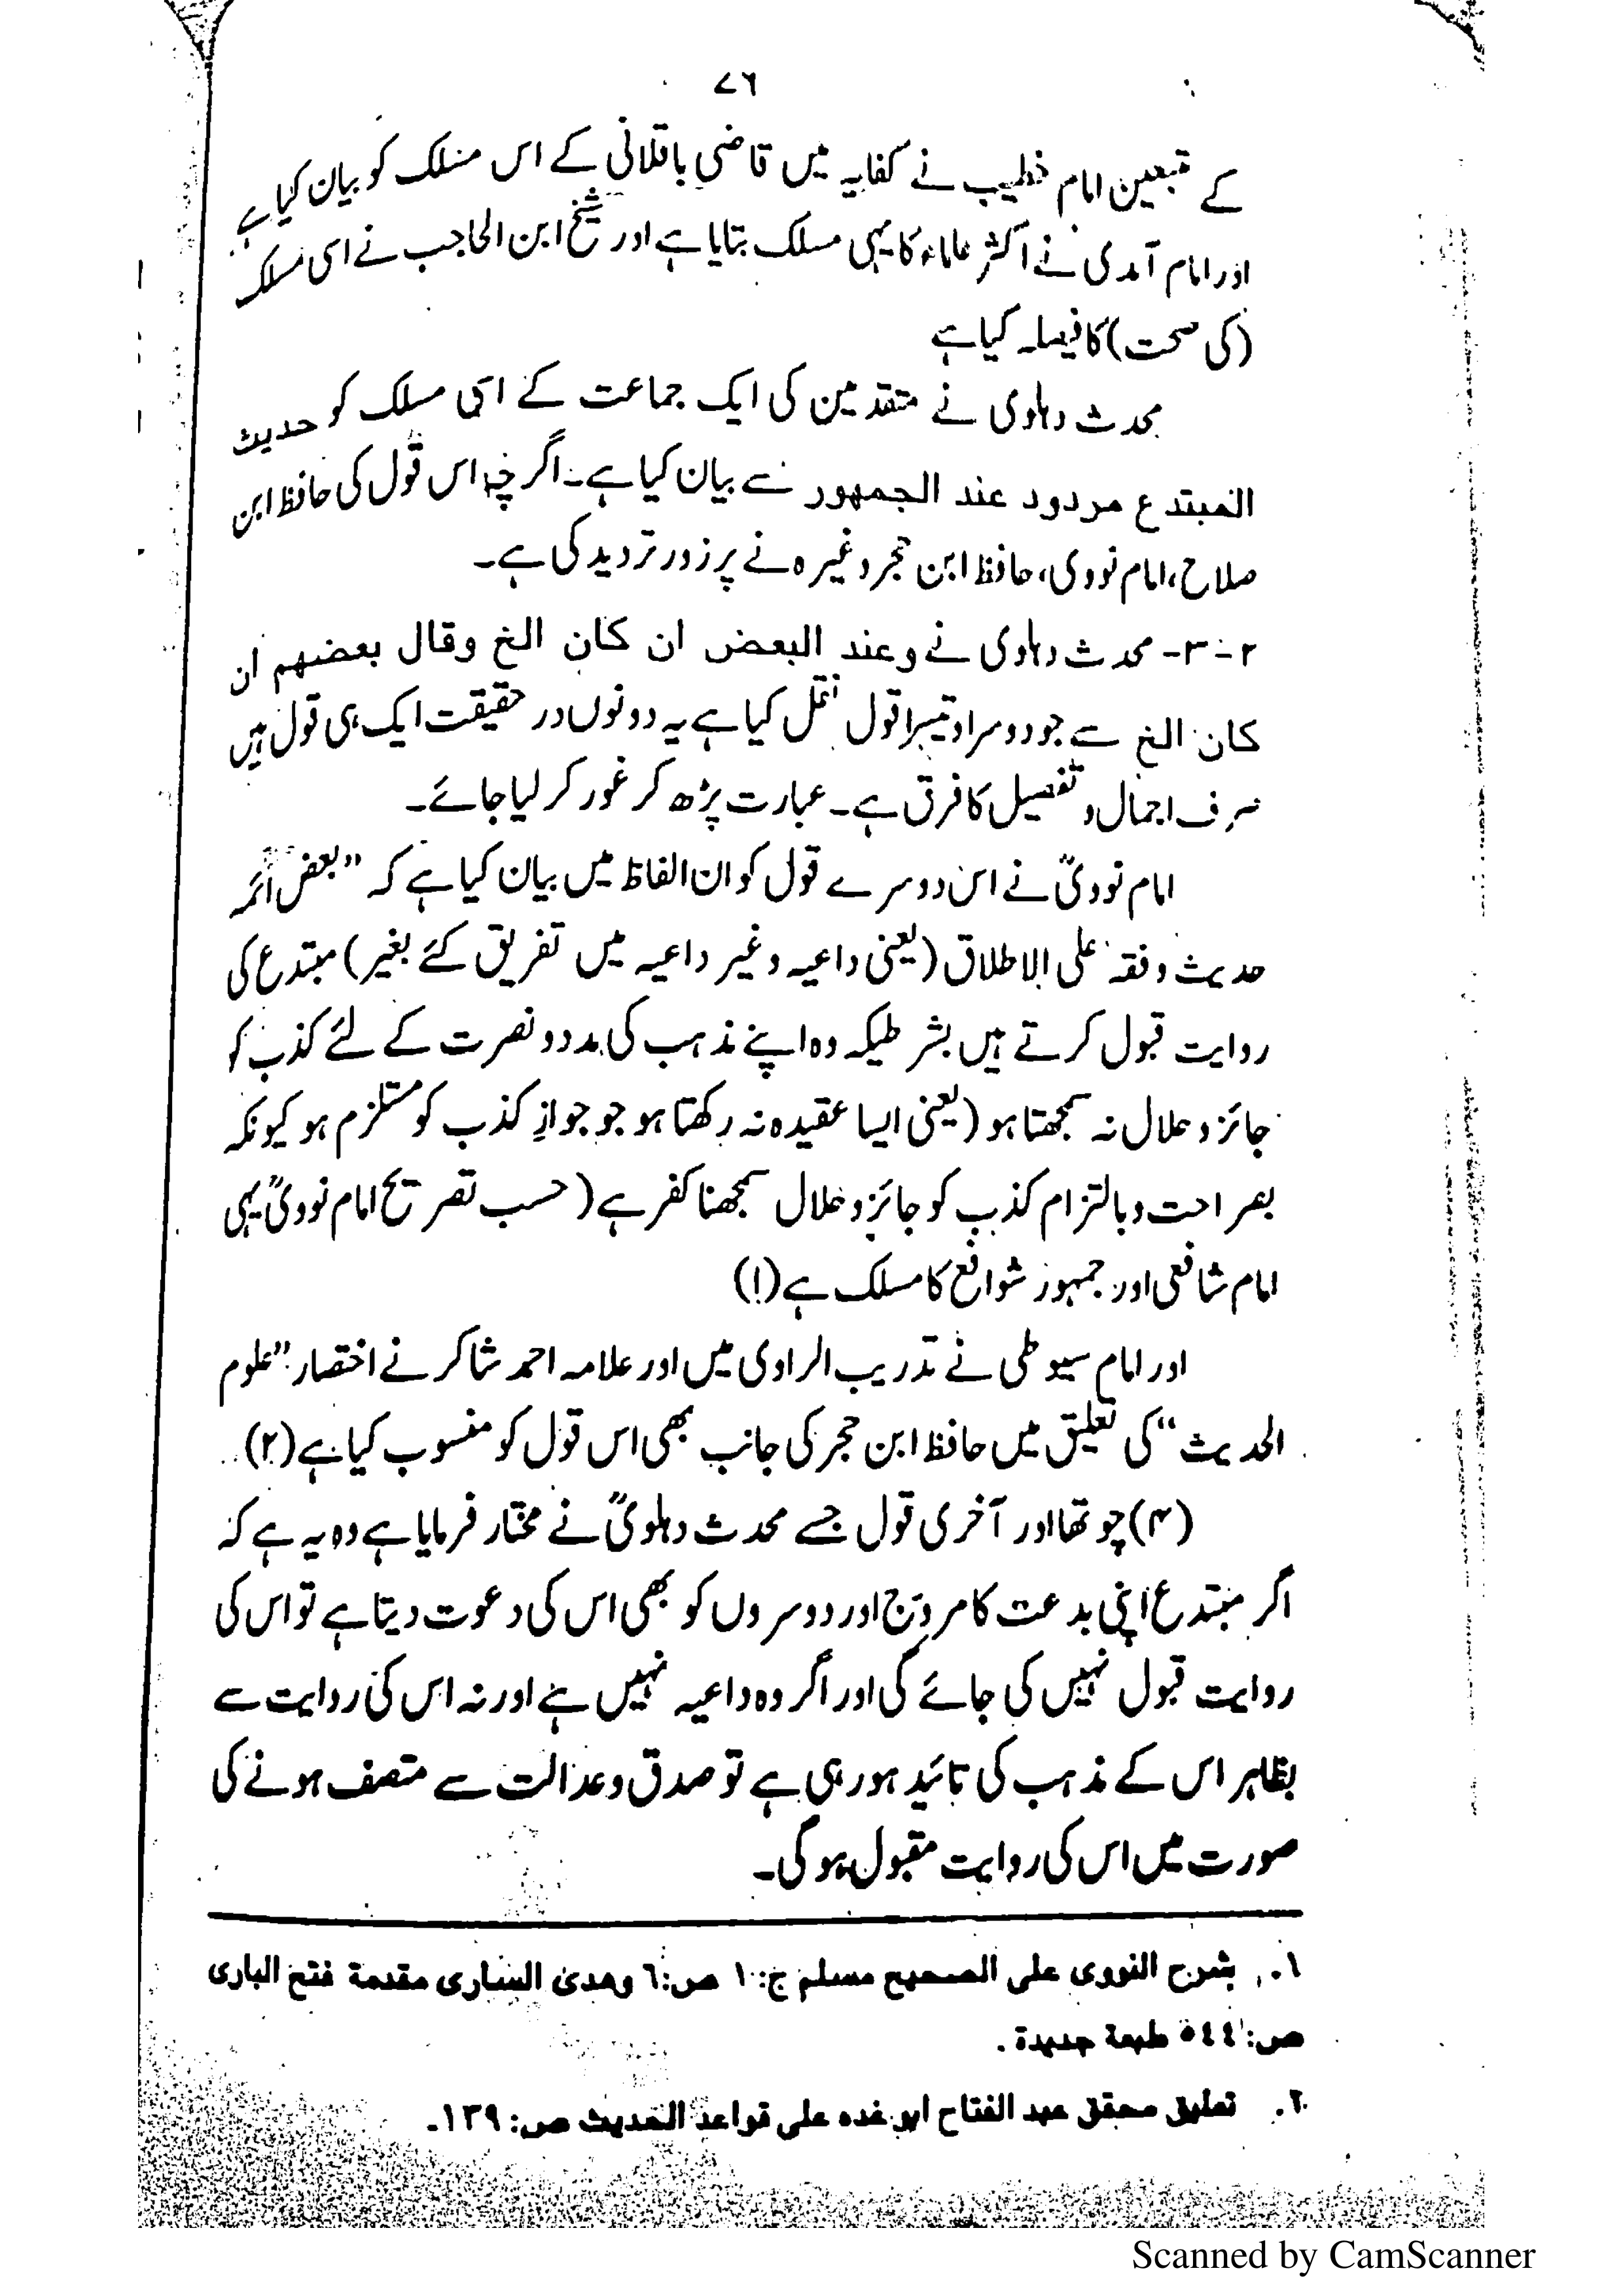 ۷۶
کے متبعین امام خطیب نے کفایہ میں قاضی باقلانی کے اس مسلک کو بیان کیا ہے
اور امام آمدی نے اکثر علماء کا یہی مسلک بتایا ہے اور شیخ ابن الحاجب نے اسی مسلک
(کی صحت) کا فیصلہ کیا ہے
محدث دہلوی نے متقدمین کی ایک جماعت کے اسی مسلک کو حدیث
المبتدع مردود عند الجمہور سے بیان کیا ہے۔ اگر چہ اس قول کی حافظ ابن
صلاح، امام نووی، حافظ ابن حجر وغیرہ نے پر زور تردید کی ہے۔
۲-۳- محدث دہلوی نے وعند البعض ان کان الخ وقال بعضهم ان
کان الخ سے جو دوسرا و تیسرا قول نقل کیا ہے یہ دونوں در حقیقت ایک ہی قول ہیں
صرف اجمال و تفصیل کا فرق ہے۔ عبارت پڑھ کر غور کر لیا جائے۔
امام نوویؒ نے اس دوسرے قول کو ان الفاظ میں بیان کیا ہے کہ ”بعض ائمہ
حدیث و فقہ علی الاطلاق (یعنی داعیہ و غیر داعیہ میں تفریق کئے بغیر) مبتدع کی
روایت قبول کرتے ہیں بشر طیکہ وہ اپنے مذہب کی مدد و نصرت کے لئے کذب کو
جائز و حلال نہ سمجھتا ہو (یعنی ایسا عقیدہ نہ رکھتا ہو جو جوازِ کذب کو مستلزم ہو کیونکہ
بصراحت و بالتزام کذب کو جائز و حلال سمجھنا کفر ہے (حسب تصریح امام نوویؒ یہی
امام شافعی اور جمہور شوافع کا مسلک ہے (۱)
اور امام سیوطی نے تدریب الراوی میں اور علامہ احمد شاکر نے اختصار ”علوم
الحدیث“ کی تعلیق میں حافظ ابن حجر کی جانب بھی اس قول کو منسوب کیا ہے (۲)
(۴) چوتھا اور آخری قول جسے محدث دہلویؒ نے مختار فرمایا ہے وہ یہ ہے کہ
اگر مبتدع اپنی بدعت کا مروّج اور دوسروں کو بھی اس کی دعوت دیتا ہے تو اس کی
روایت قبول نہیں کی جائے گی اور اگر وہ داعیہ نہیں ہے اور نہ اس کی روایت سے
بظاہر اس کے مذہب کی تائید ہو رہی ہے تو صدق و عدالت سے متصف ہونے کی
صورت میں اس کی روایت مقبول ہو گی۔
۱. شرح النووی علی الصحیح مسلم ج: ۱ ص: ٦ وهدی الساری مقدمة فتح الباری
ص: ٥٤٤ طبعة جدیدة .
۲. تعلیق محقق عبد الفتاح ابو غده علی قواعد الحدیث ص: ۱۳۹۔
Scanned by CamScanner